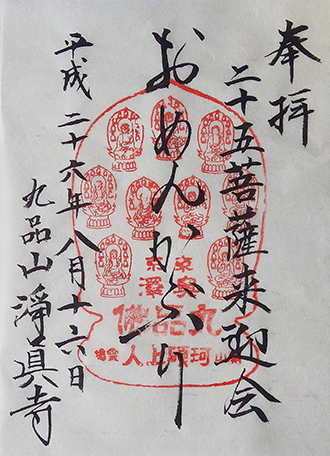 奉拝
二十五菩薩来迎会
おめんかぶり
平成二十六年八月十六日
九品山淨眞寺
東京
奥澤
九品佛
珂碩上人